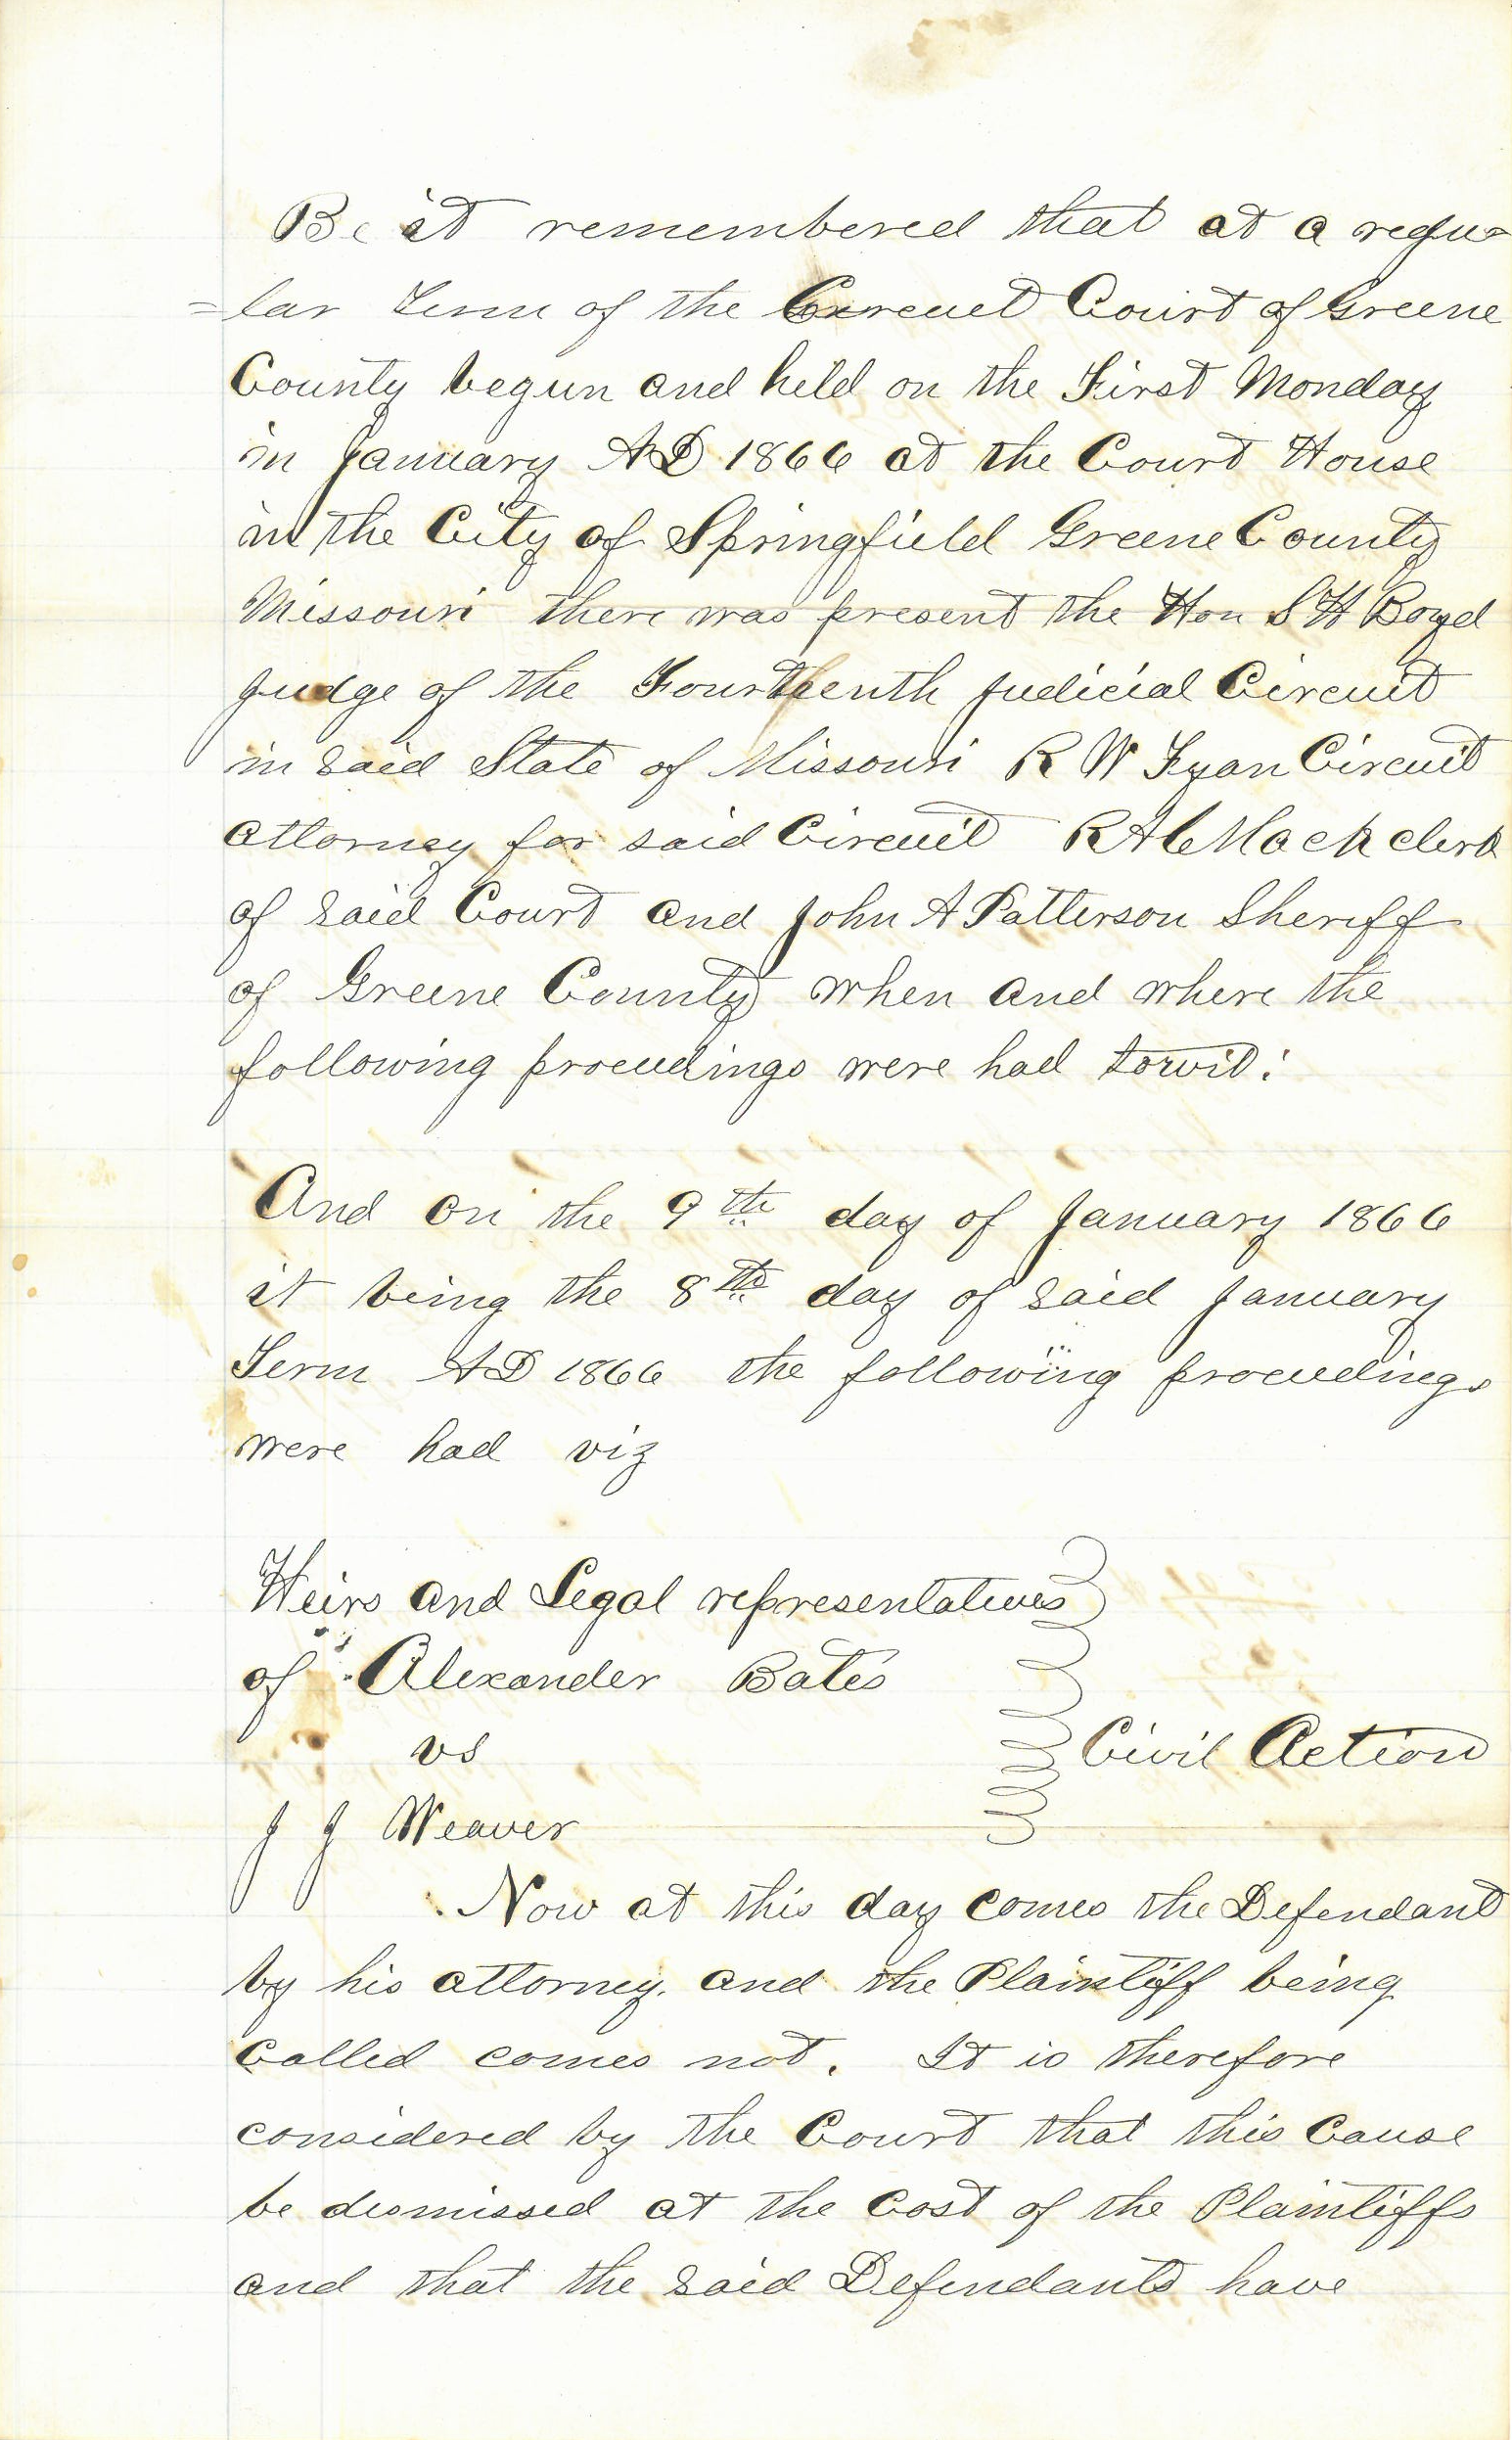 Be it remembered that at a regu=
=lar Term of the Circuit Court of Greene
County begun and held on the First Monday
in January AD 1866 at the Court House
in the City of Springfield Greene County
Missouri there was present the Hon S H Boyd
Judge of the Fourteenth Judicial Circuit
in said State of Missouri R W Fyan Circuit
attorney for said Circuit R A C Mack clerk
of said Court and John A Patterson Sheriff
of Greene County when and where the
following proceedings were had towit:
And on the 9th day of January 1866
it being the 8th day of said January
Term AD 1866 the following proceedings
were had viz
Heirs and Legal representatives
of Alexander Bates
vs
Civil Action
J J Weaver
Now at this day comes the Defendant
by his attorney. and the Plaintiff being
called comes not. It is therefore
considered by the Court that this Cause
be dismissed at the Cost of the Plaintiffs
and that the said Defendants have